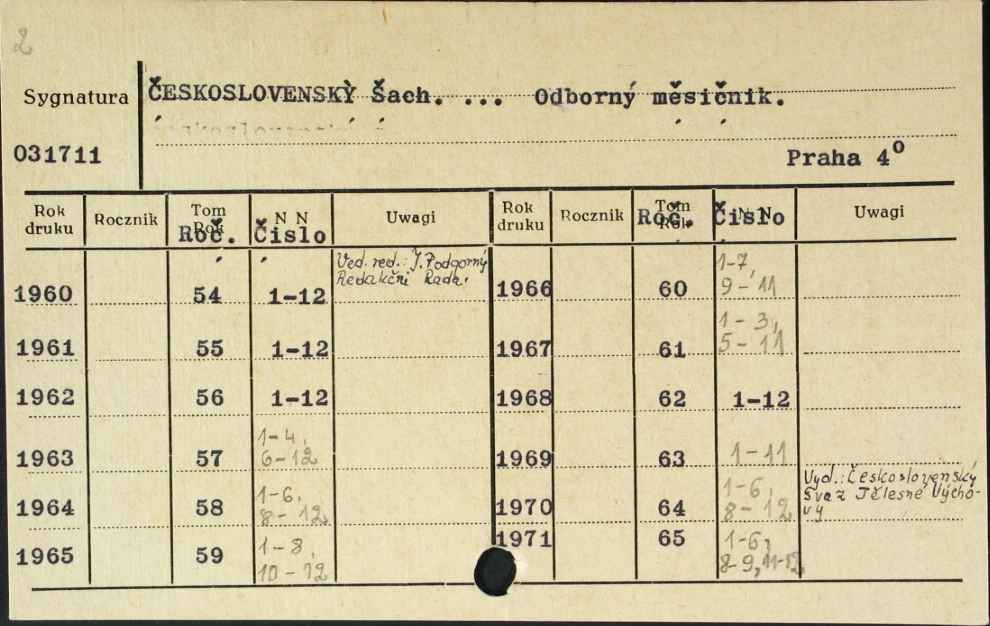 2
Sygnatura ČESKOSLOVENSKÝ Šach. ... Odborný měsičnik.
031711 Praha 4º
Rok druku Rocznik Tom Rok Roč. N N Čislo Uwagi Rok druku Rocznik Tom Rok Roč. N N Čislo Uwagi
Ved. red.: J. Podgorný
Redakční Rada.
1960 54 1-12 1966 60 1-7, 9-11
1961 55 1-12 1967 61 1-3, 5-11
1962 56 1-12 1968 62 1-12
1963 57 1-4, 6-12 1969 63 1-11
1964 58 1-6, 8-12 1970 64 1-6, 8-12 Vyd.: Československý
Svaz Tělesné Výcho-
vy
1965 59 1-8, 10-12 1971 65 1-6, 8-9, 11-12